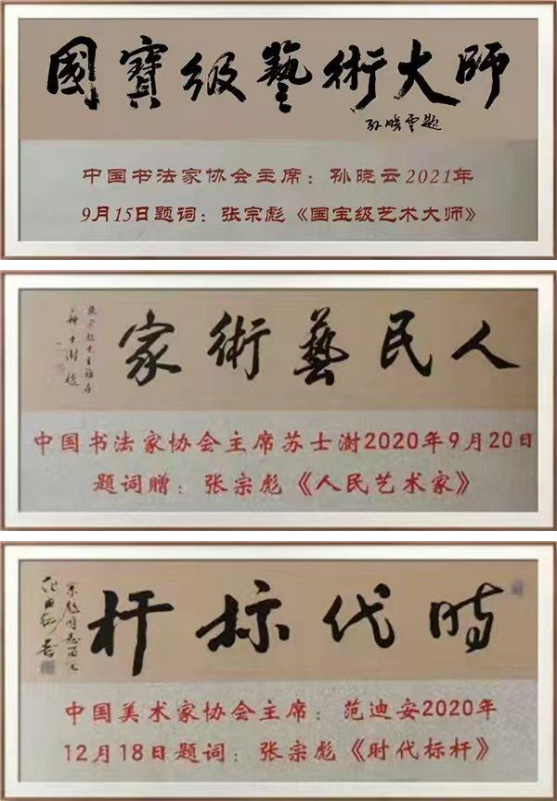 國寶级藝術大師
孙晓雲题
中国书法家协会主席：孙晓云2021年
9月15日题词：张宗彪《国宝级艺术大师》
人民藝術家
張宗彪先生雅存
苏士澍題
中国书法家协会主席苏士澍2020年9月20日
题词赠：张宗彪《人民艺术家》
時代标杆
宗彪同志
范迪安書
中国美术家协会主席：范迪安2020年
12月18日题词：张宗彪《时代标杆》